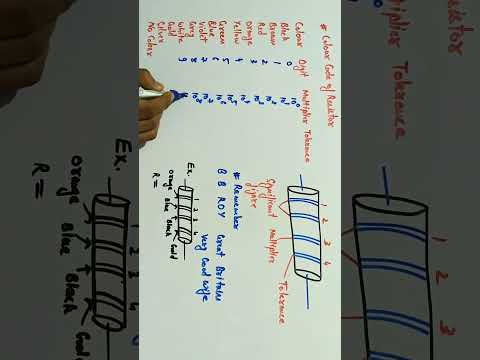 # Colour Code of Resistor
Colour Digit Multiplier Tolerance
Black 0 10⁰
Brown 1 10¹
Red 2 10²
Orange 3 10³
Yellow 4 10⁴
Green 5 10⁵
Blue 6 10⁶
Violet 7 10⁷
Grey 8 10⁸
White 9
Gold
Silver
No Colour
1 2 3 4
Significant figure
Multiplier
Tolerance
# Remember
B B ROY Great Britain
Very Good wife
Ex. 1 2 3 4
Orange Blue Black Gold
R =